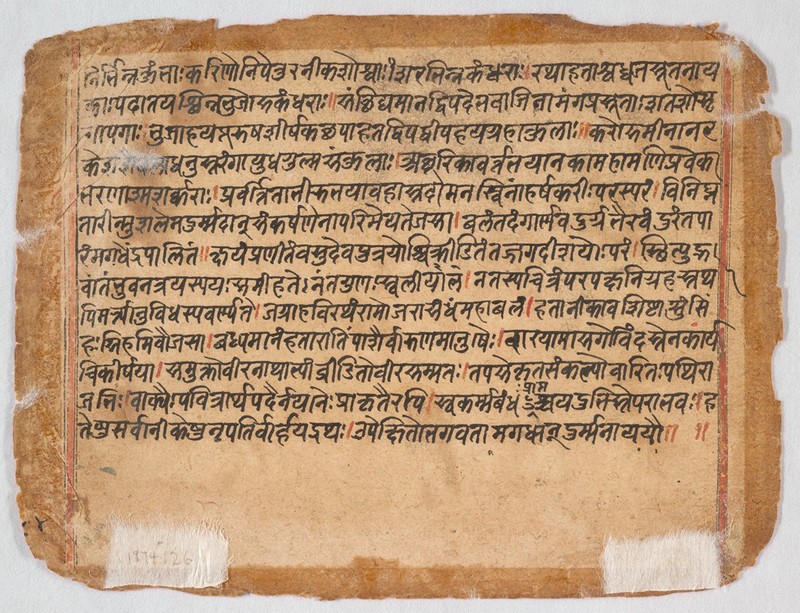 निर्भिन्नकुंभाः करिणो निपेतुरनेकशोस्वाः शरभिन्नकंधराः । रथाहताश्वध्वजसूतनाय
काः पदातयश्छिन्नभुजोरुकंधराः ॥ संछिद्यमानद्विपदेभवाजिनामंगप्रसूताः शतशोसृ
गापगाः भुजाहयपूरुषशीर्षकछपाहतद्विपद्वीपहयग्रहाकुलाः । करोरुमीनानर
केश धनुस्तरंगायुधगुल्मसंकुलाः । अछूरिकावर्तभयानकामहामणिप्रवेका
भरणाश्मशर्कराः । प्रवर्तिताभीरुभयावहामृधेमनस्विनांहर्षकरीःपरस्परं । विनिघ्न
तारीन्मुशलेनदुर्मदान्संकर्षणेनापरिमेयतेजसा । बलंतदंगार्णवदुर्गभैरवंदुरंतपा
रंमगधेंद्रपालितं ॥ क्षयंप्रणीतंवसुदेवपुत्रयोर्विक्रीडितंतज्जगदीशयोःपरं । स्थित्युद्भ
वांतंभुवनत्रयस्ययः समीहतेनंतगुणःस्वलीयाल । नतस्यचित्रंपरपक्षनिग्रहस्तथा
पिमर्त्यानुविधस्यवर्ण्यते । जग्राहविरथंरामोजरासंधंमहाबलं । हतानीकावशिष्टासुंसिं
हः सिंहमिवौजसा । बध्यमानंहतारातिंपाशैर्वारुणमानुषैः । वारयामासगोविंदस्तेनकार्य
चिकीर्षया । समुक्तो व्रीडितोवीरसम्मतः । तपसेकृतसंकल्पोवारितःपथिरा
जभिः । वाक्यैःपवित्रार्थपदैर्नयनैः प्राकृतैरपि । स्वकर्मबंध यदुभिस्तेपराभवः । ह
तेषुसर्वानीकेषुनृपतिर्बार्हद्रथः । उपेक्षितोभगवतामगधान्दुर्मनाययौ ॥ ॥
1974.126